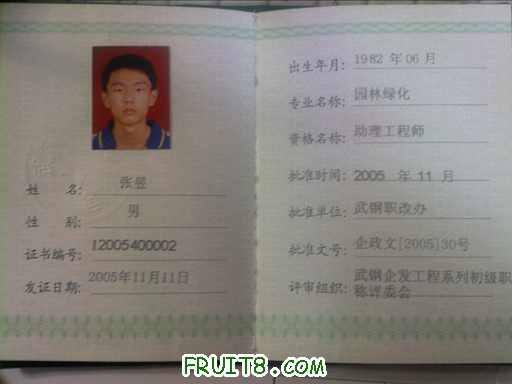 姓 名: 张昱
性 别: 男
证书编号: 12005400002
发证日期: 2005年11月11日
出生年月: 1982 年 06 月
专业名称: 园林绿化
资格名称: 助理工程师
批准时间: 2005 年 11 月
批准单位: 武钢职改办
批准文号: 企政文[2005]30号
评审组织: 武钢企发工程系列初级职
称评委会
FRUIT8.COM